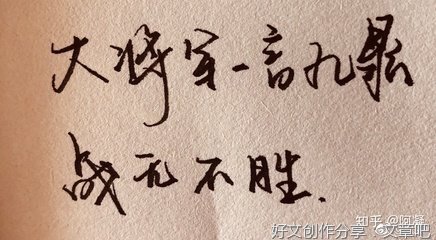 大将军-言九鼎
战无不胜.
知乎 @阿凝
好文创作分享 文章吧